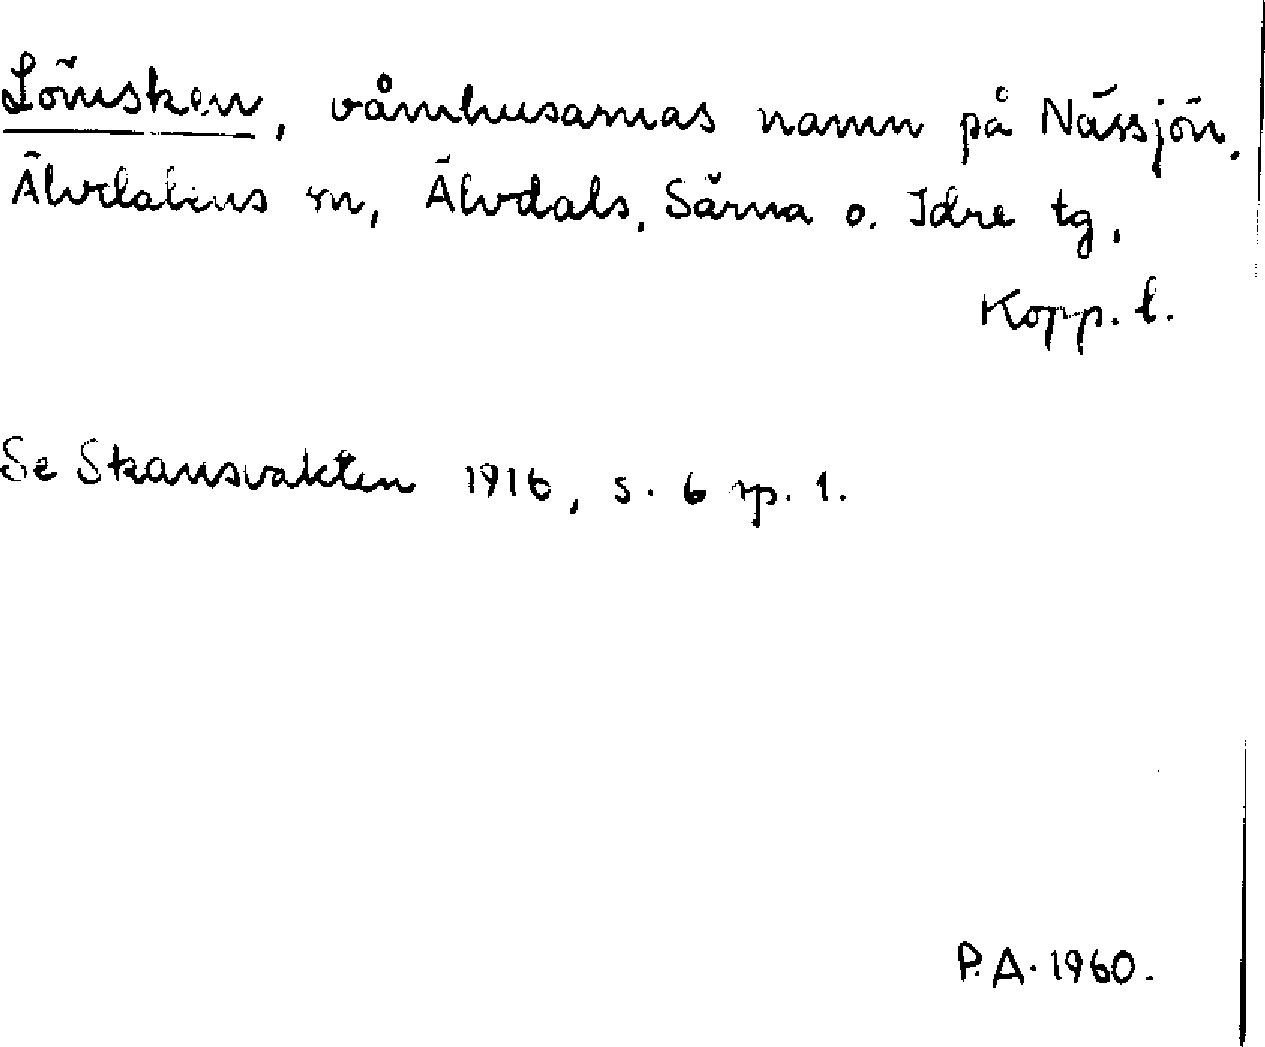 Lömsken, våmhusarnas namn på Nässjön.
Älvdalens sn, Älvdals, Särna o. Idre tg,
Kopp. l.
Se Skansvakten 1916, s. 6 sp. 1.
P.A. 1960.